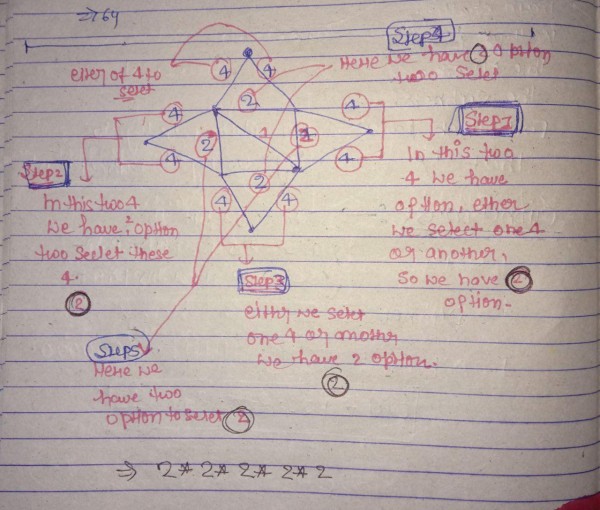 ⇒ 64
Step4
Here we have 2 option
two select
ether of 4 to
select
4
4
2
4
4
4
4
2
1
2
2
4
4
Step1
In this two
4 we have
option, ether
we select one 4
or another,
So we have 2
option.
Step2
In this two 4
we have 2 option
two seelet these
4.
2
Step3
eithr we selet
one 4 or anothr
we have 2 option.
2
Step5
Here we
have two
option to selet 2
⇒ 2* 2* 2* 2* 2